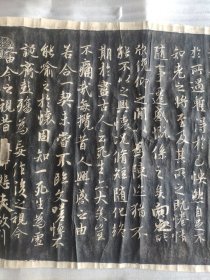 於所遇暫得於己快然自足不
知老之將至及其所之既惓情
隨事遷感慨係之矣向之所
欣俛仰之間以為陳迹猶不
能不以之興懷況脩短隨化終
期於盡古人云死生亦大矣豈
不痛哉每攬昔人興感之由
若合一契未嘗不臨文嗟悼不
能喻之於懷固知一死生為虛
誕齊彭殤為妄作後之視今
由今之視昔悲夫故列